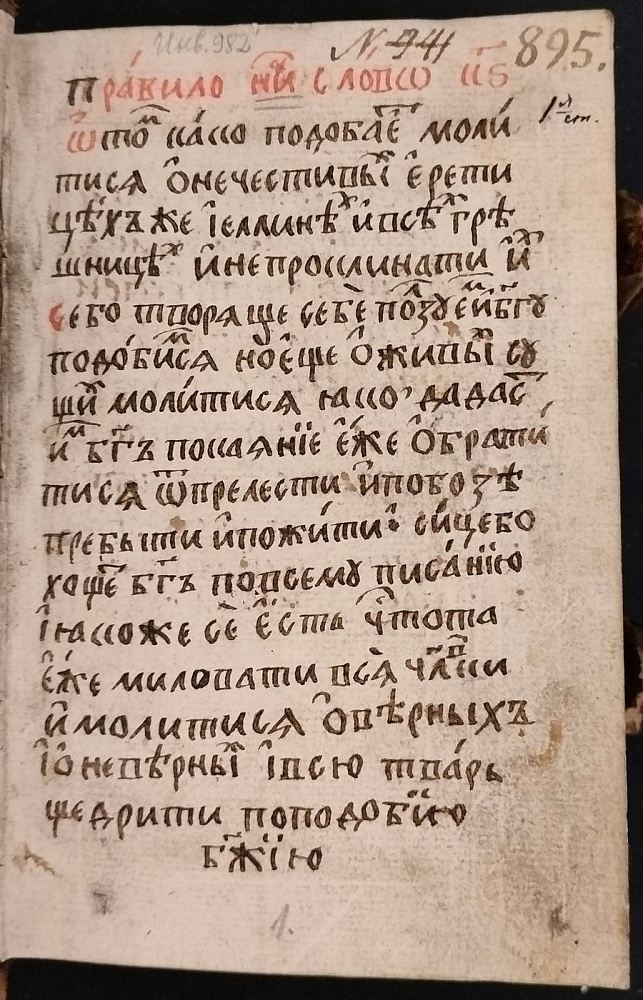 Инв. 982
N. 941
895.
Пра́вило н҃и слово н҃ѕ
ѿто́мъ како подобае́тъ моли́
тися ѻ҆нечестивы́хъ е҆рети
цѣ́хъ же і҆еллинѣхъ и҆всѣхъ грѣ
шницѣхъ и҆непроклинати и҆хъ
себо творяще себѐ по́лзуемъ и҆бг҃у
подо́бимся ноеще ѻ҆живы́хъ су
щи́хъ моли́тися ꙗко дадастъ
и҆мъ бг҃ъ покаянїе е҆́же ѻ҆брати́
тися ѿпрелести и҆побозѣ
пребыти и҆пожи́ти си́цебо
хощетъ бг҃ъ повсему писа́нїю
і҆ꙗкоже сѐ е҆́сть чтⷭ҇ота
е҆́же миловати вся̀ члв҃ки
и҆молитися ѻ҆вѣрныхъ
і҆ѻ҆невѣрны́хъ і҆всю тва́рь
щедрити поподобїю
бж҃їю
1.